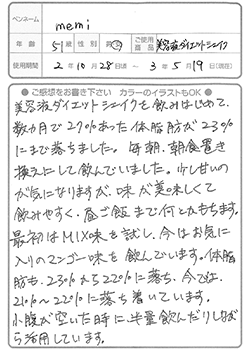 ペンネーム memi
年齢 51 性別 男・女 ご使用商品 美容液ダイエットシェイク
使用期間 2年10月28日頃〜3年5月19日(現在)
● ご感想をお書き下さい カラーのイラストもOK ●
美容液ダイエットシェイクを飲みはじめて、
数ヵ月で27%あった体脂肪が23%
にまで落ちました。毎朝、朝食置き
換えにして飲んでいました。少し甘いの
が気になりますが、味が美味しくて
飲みやすく、昼ご飯まで何とかもちます。
最初はMIX味を試し、今はお気に
入りのマンゴー味を飲んでいます。体脂
肪も、23%から22%に落ち、今では、
21%〜22%に落ち着いています。
小腹が空いた時に、半量飲んだりしなが
ら活用しています。